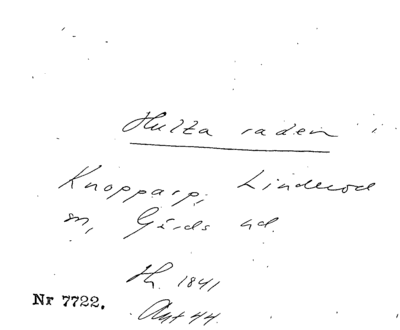 Hulta raden
Knopparp, Linderöd
sn, Gärds hd.
H. 1841
Nr 7722.
Akt 44.